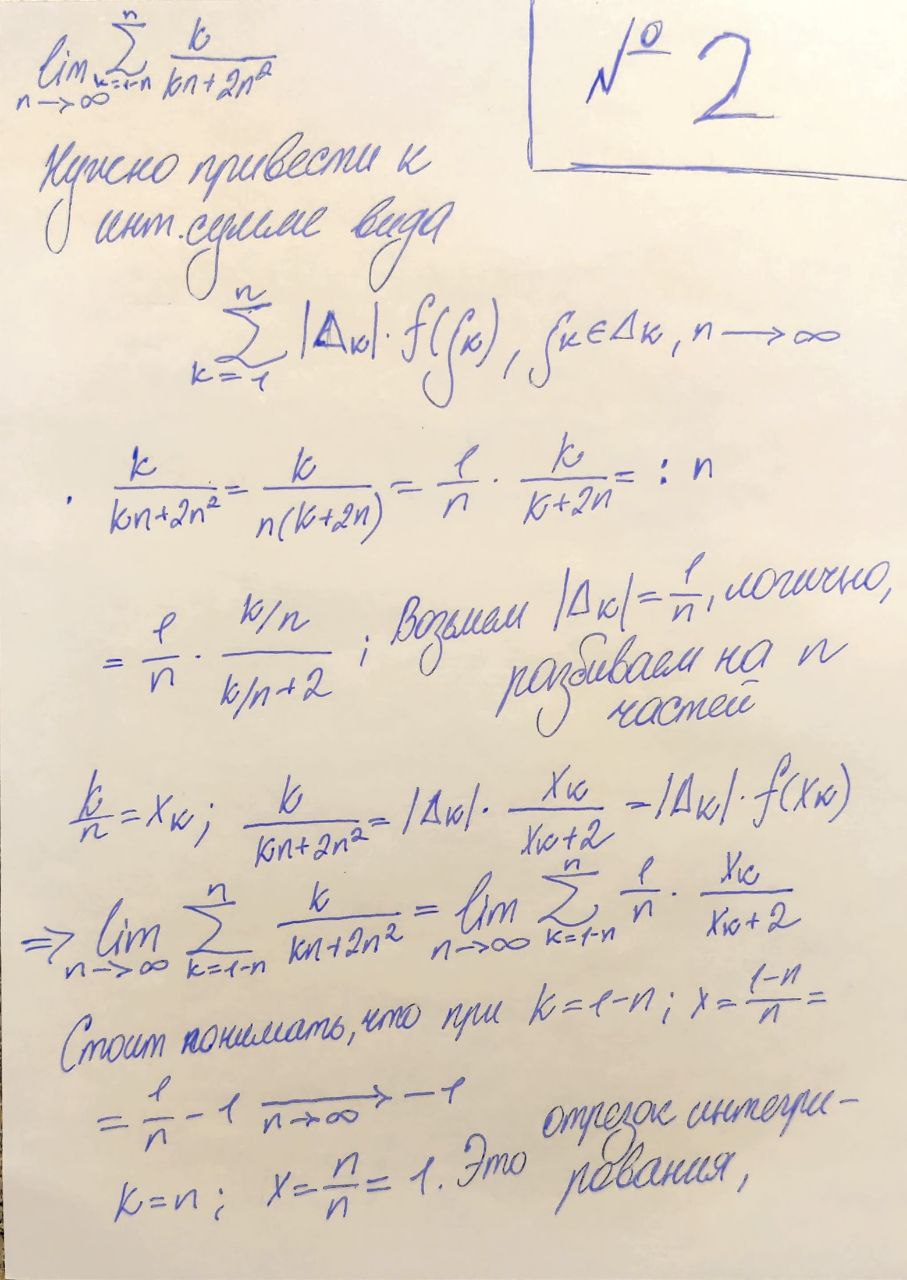 lim_{n→∞} ∑_{k=1-n}^{n} k/(kn+2n²)
№ 2
Нужно привести к
инт. сумме вида
∑_{k=1}^{n} |Δk|·f(ξk), ξk∈Δk, n→∞
· k/(kn+2n²) = k/(n(k+2n)) = 1/n · k/(k+2n) = : n
= 1/n · (k/n)/(k/n+2) ; Возьмем |Δk| = 1/n, логично,
разбиваем на n
частей
k/n = xk; k/(kn+2n²) = |Δk|· xk/(xk+2) = |Δk|·f(xk)
⇒ lim_{n→∞} ∑_{k=1-n}^{n} k/(kn+2n²) = lim_{n→∞} ∑_{k=1-n}^{n} 1/n · xk/(xk+2)
Стоит понимать, что при k=1-n; x=(1-n)/n =
= 1/n - 1 →_{n→∞} -1
k=n; x=n/n=1. Это отрезок интегри-
рования,